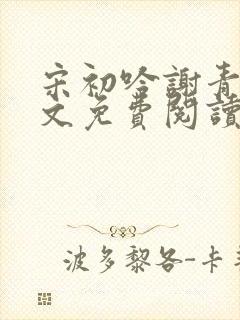 宋初哈謝青
文免費閱讀
波多黎各-卡